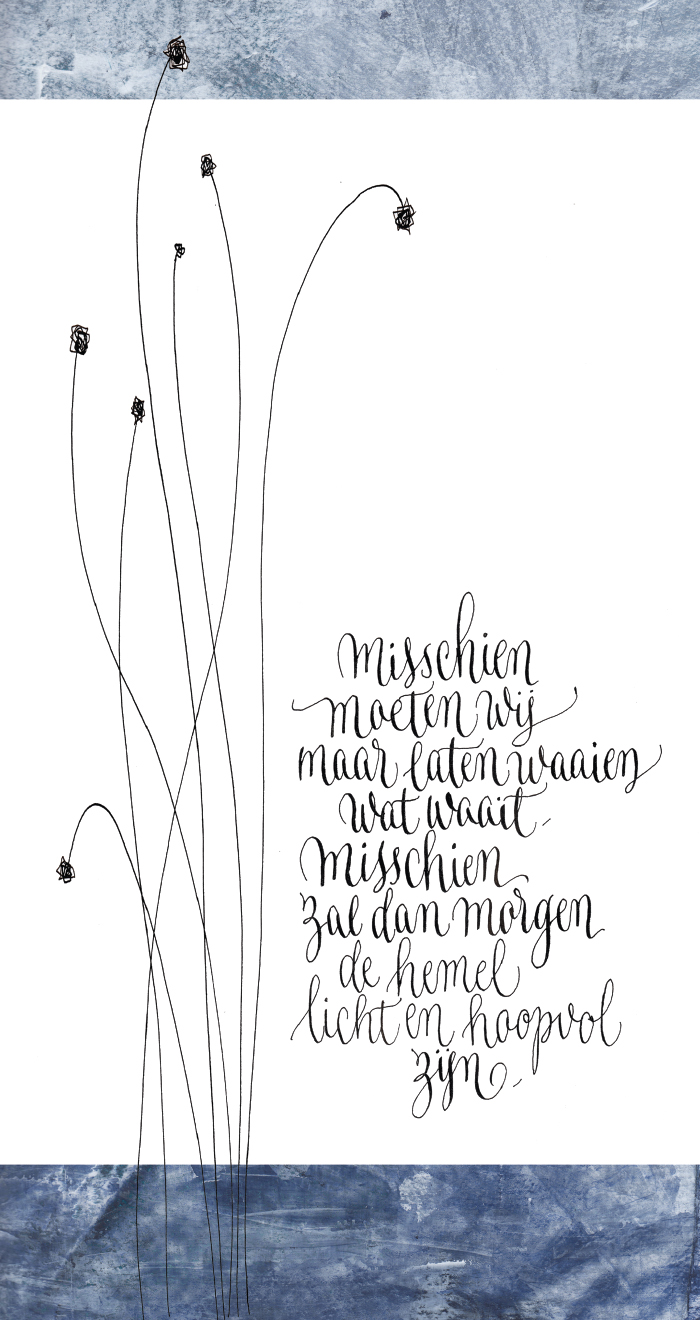 misschien
moeten wij
maar laten waaien
wat waait.
Misschien
zal dan morgen
de hemel
licht en hoopvol
zijn.